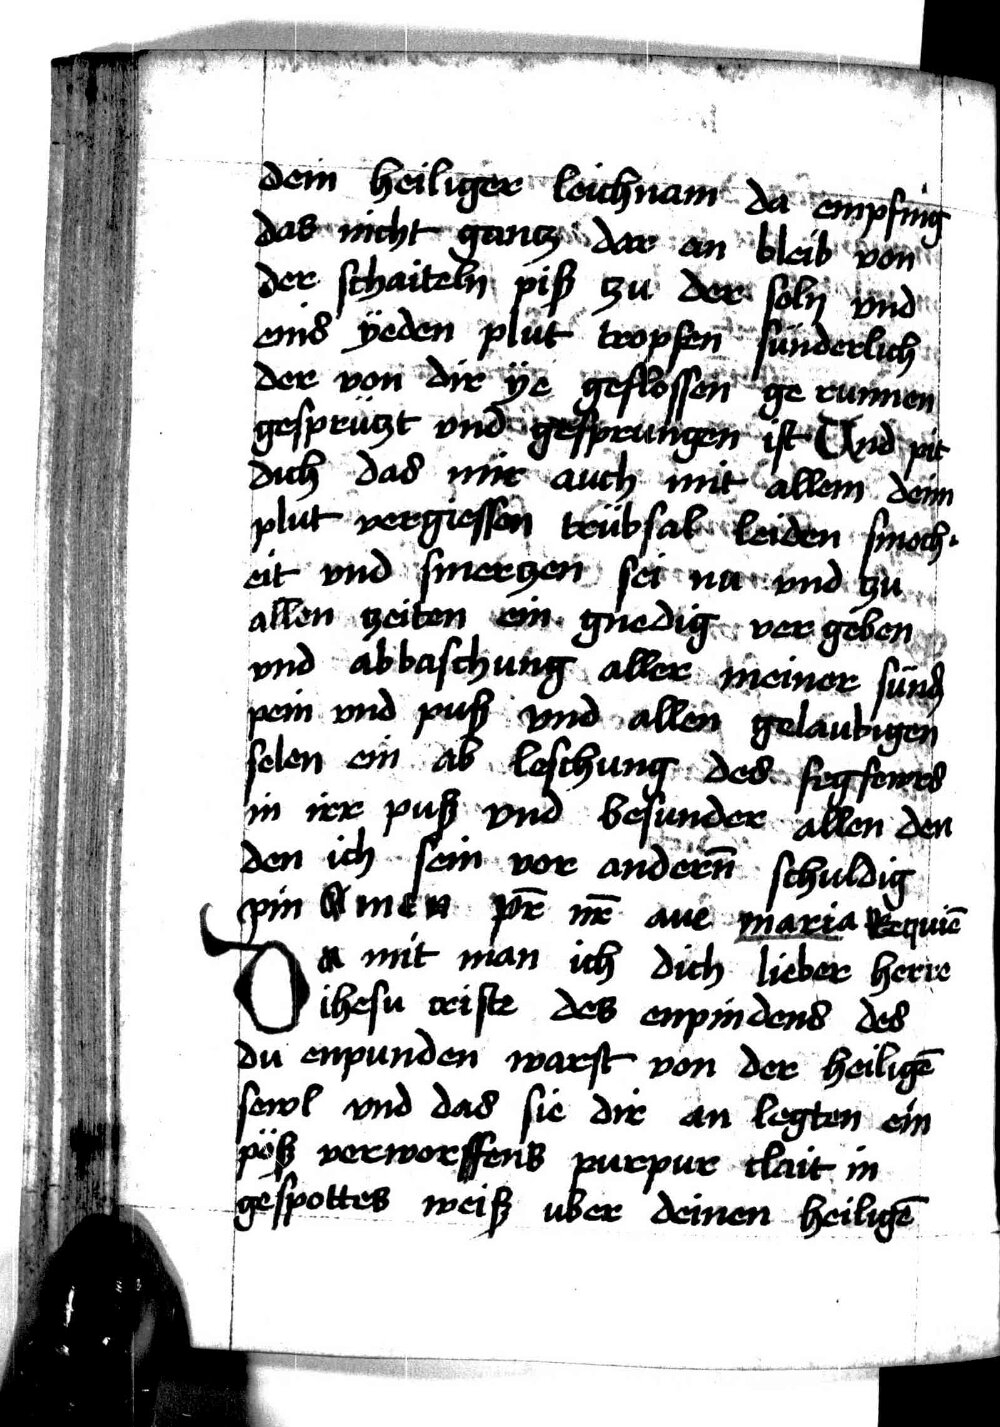 dein heiliger leichnam da empfing
das nicht gantz dar an bleib von
der schaiteln piß tzu der soln vnd
eins ÿeden plut tropfen sünderlich
der von dir ÿe geflossen ge runnen
gesprützt vnd gesprungen ist Und pit
dich das mir auch mit allem deim
plut vergiessen trübsal leiden smoch-
eit vnd smertzen sei nu vnd tzu
allen tzeiten ein gnedig ver geben
vnd abbaschung aller meiner sünd
pein vnd puß vnd allen gelaubigen
selen ein ab leschung des fegfewrs
in irr puß vnd besunder allen den
den ich sein vor andern̄ schuldig
pin Amen pr̄ nr̄ aue maria Requiē
Da mit man ich dich lieber herre
ihesu criste des enpindens des
du enpunden warst von der heiligē
sewl vnd das sie dir an legten ein
pöß verworffens purpur clait in
gespottes weiß uber deinen heiligē